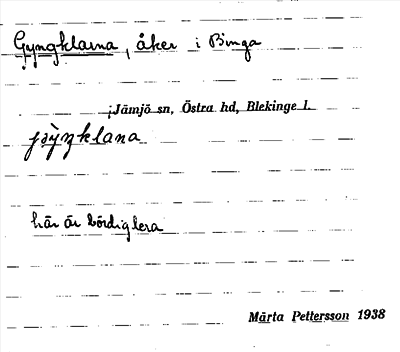 Gyngklarna, åker i Binga
Jämjö sn, Östra hd, Blekinge l.
här är bördig lera
Märta Pettersson 1938